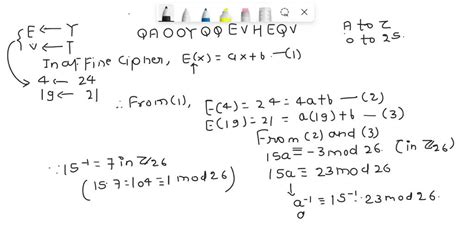 QAOOYQQEVHEQV
A to Z
0 to 25.
{ E ← Y
V ← T
In affine Cipher, E(x) = ax+b — (1)
4 ← 24
19 ← 21
∴ From (1), E(4) = 24 = 4a+b — (2)
E(19) = 21 = a(19)+b — (3)
From (2) and (3)
15a ≡ -3 mod 26 (in Z26)
15a ≡ 23 mod 26
a⁻¹ ≡ 15⁻¹·23 mod 26.
a
∵ 15⁻¹ = 7 in Z26
(15·7=104≡1 mod 26)